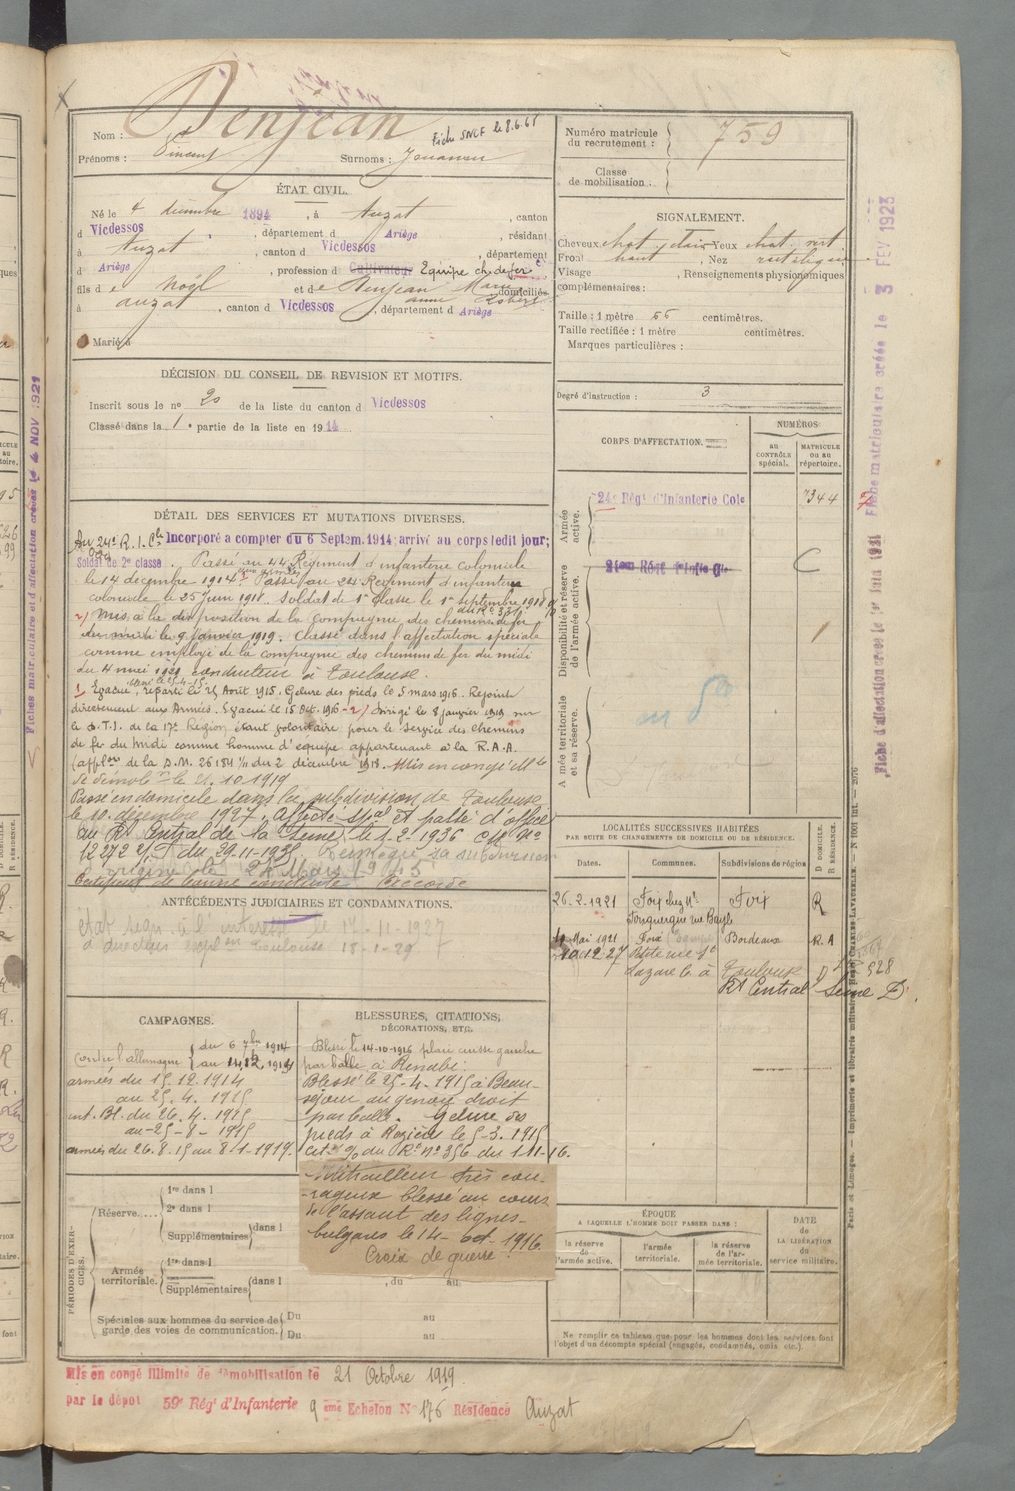 Nom : Denjean
Fiche SNCF le 8.6.65
Prénoms : Vincent Surnoms :
Numéro matricule du recrutement : 759
Classe de mobilisation :
ÉTAT CIVIL.
Né le 4 décembre 1894, à Auzat, canton
d Vicdessos, département d Ariège, résidant
à Auzat, canton d Vicdessos, département
d Ariège, profession d Cultivateur Equipe ch. de fer
fils de Noël et de Denjean Marie Anne domiciliés
à Auzat, canton d Vicdessos, département d Ariège
Marié à
SIGNALEMENT.
Cheveux chat. clair Yeux chat. vert.
Front haut, Nez rectiligne
Visage , Renseignements physionomiques
complémentaires :
Taille : 1 mètre 66 centimètres.
Taille rectifiée : 1 mètre centimètres.
Marques particulières :
Degré d'instruction : 3
DÉCISION DU CONSEIL DE REVISION ET MOTIFS.
Inscrit sous le no 20 de la liste du canton d Vicdessos
Classé dans la 1e partie de la liste en 1914
CORPS D'AFFECTATION.
NUMÉROS
au CONTRÔLE spécial.
MATRICULE ou au répertoire.
Armée active.
24e Régt d'Infanterie Cole
7344
Disponibilité et réserve de l'armée active.
Armée territoriale et sa réserve.
DÉTAIL DES SERVICES ET MUTATIONS DIVERSES.
Au 24e R.I.Cle Incorporé a compter du 6 Septem. 1914; arrivé au corps ledit jour;
Soldat de 2e classe. Passé au 44 Régiment d'infanterie coloniale
le 14 décembre 1914. Passé au 24 Régiment d'infanterie
coloniale le 25 Juin 1918. Soldat de 1e Classe le 1er septembre 1918
2) Mis à la disposition de la Compagnie des chemins de fer
du midi le 9 Janvier 1919. Classé dans l'affectation spéciale
comme employé de la compagnie des chemins de fer du midi
du 4 mai 1921 conducteur à Toulouse.
1 Evacué, reparti le 25 Août 1915. Gelure des pieds le 5 mars 1916. Rejoint
directement aux Armées. Evacué le 15 Oct. 1916 - 2) Dirigé le 8 janvier 1919 sur
le D.T.I. de la 17e Région étant volontaire pour le service des chemins
de fer du Midi comme homme d'équipe appartenant à la R.A.A.
(applon de la D.M. 26184 1/11 du 2 décembre 1918. Mis en congé illté
de démobon le 21.10.1919
Passé en domicile dans la subdivision de Toulouse
le 10 décembre 1927. Affecté spal et passé d'office
au Rt Central de la Seine le 1-2-1936
du 29-11-1935
Certificat de bonne conduite Accordé
ANTÉCÉDENTS JUDICIAIRES ET CONDAMNATIONS.
LOCALITÉS SUCCESSIVES HABITÉES
PAR SUITE DE CHANGEMENTS DE DOMICILE OU DE RÉSIDENCE.
Dates. Communes. Subdivisions de région D DOMICILE. R RÉSIDENCE.
26-2-1921 Foix chez Me Fouguergue rue Bayle Foix R
19 Mai 1921 Foix Bordeaux R.A
10.12.27 Petite rue St Lazare 6 à Toulouse D
Rt Central Seine D.
CAMPAGNES.
Contre l'allemagne du 6 7bre 1914 au 14.12.1914
armées du 15.12.1914
au 25.4.1915
int. Bl. du 26.4.1915
au 25-8-1915
armées du 26.8.15 au 8.1.1919.
BLESSURES, CITATIONS,
DÉCORATIONS, ETC.
Blessé le 14-10-1916 plaie cuisse gauche
par balle à Kenabi
Blessé le 25-4-1915 à Beau-
séjour au genou droit
par balle. Gelure des
pieds à le 5-3.1915
Cité o/ du Rt no 356 du 1-11-16.
Mitrailleur très cou-
-rageux blessé au cours
de l'assaut des lignes
bulgares le 14-oct-1916.
Croix de guerre
PÉRIODES D'EXERCICES.
Réserve....
1re dans l
2e dans l
Supplémentaires dans l
Armée territoriale.
1re dans l
Supplémentaires dans l , du au
Spéciales aux hommes du service de garde des voies de communication.
Du au
Du au
ÉPOQUE
A LAQUELLE L'HOMME DOIT PASSER DANS :
la réserve de l'armée active.
l'armée territoriale.
la réserve de l'armée territoriale.
DATE de LA LIBÉRATION du service militaire.
Ne remplir ce tableau que pour les hommes dont les services font
l'objet d'un décompte spécial (engagés, condamnés, omis, etc.).
Mis en congé illimité de démobilisation le 21 Octobre 1919.
par le dépôt 59e Régt d'Infanterie 9 ème Echelon No 176 Résidence Auzat
Fiche d'affectation créée le 1er Juin 1921 Fiche matriculaire créée le 3 FEV 1923
Paris et Limoges. — Imprimerie et librairie militaires Henri CHARLES-LAVAUZELLE.
Fiches matriculaire et d'affectation créées le 4 NOV 1921